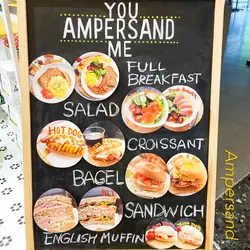 YOU
AMPERSAND
ME
FULL
BREAKFAST
SALAD
HOT DOG
CROISSANT
BAGEL
SANDWICH
ENGLISH MUFFIN
Ampersand